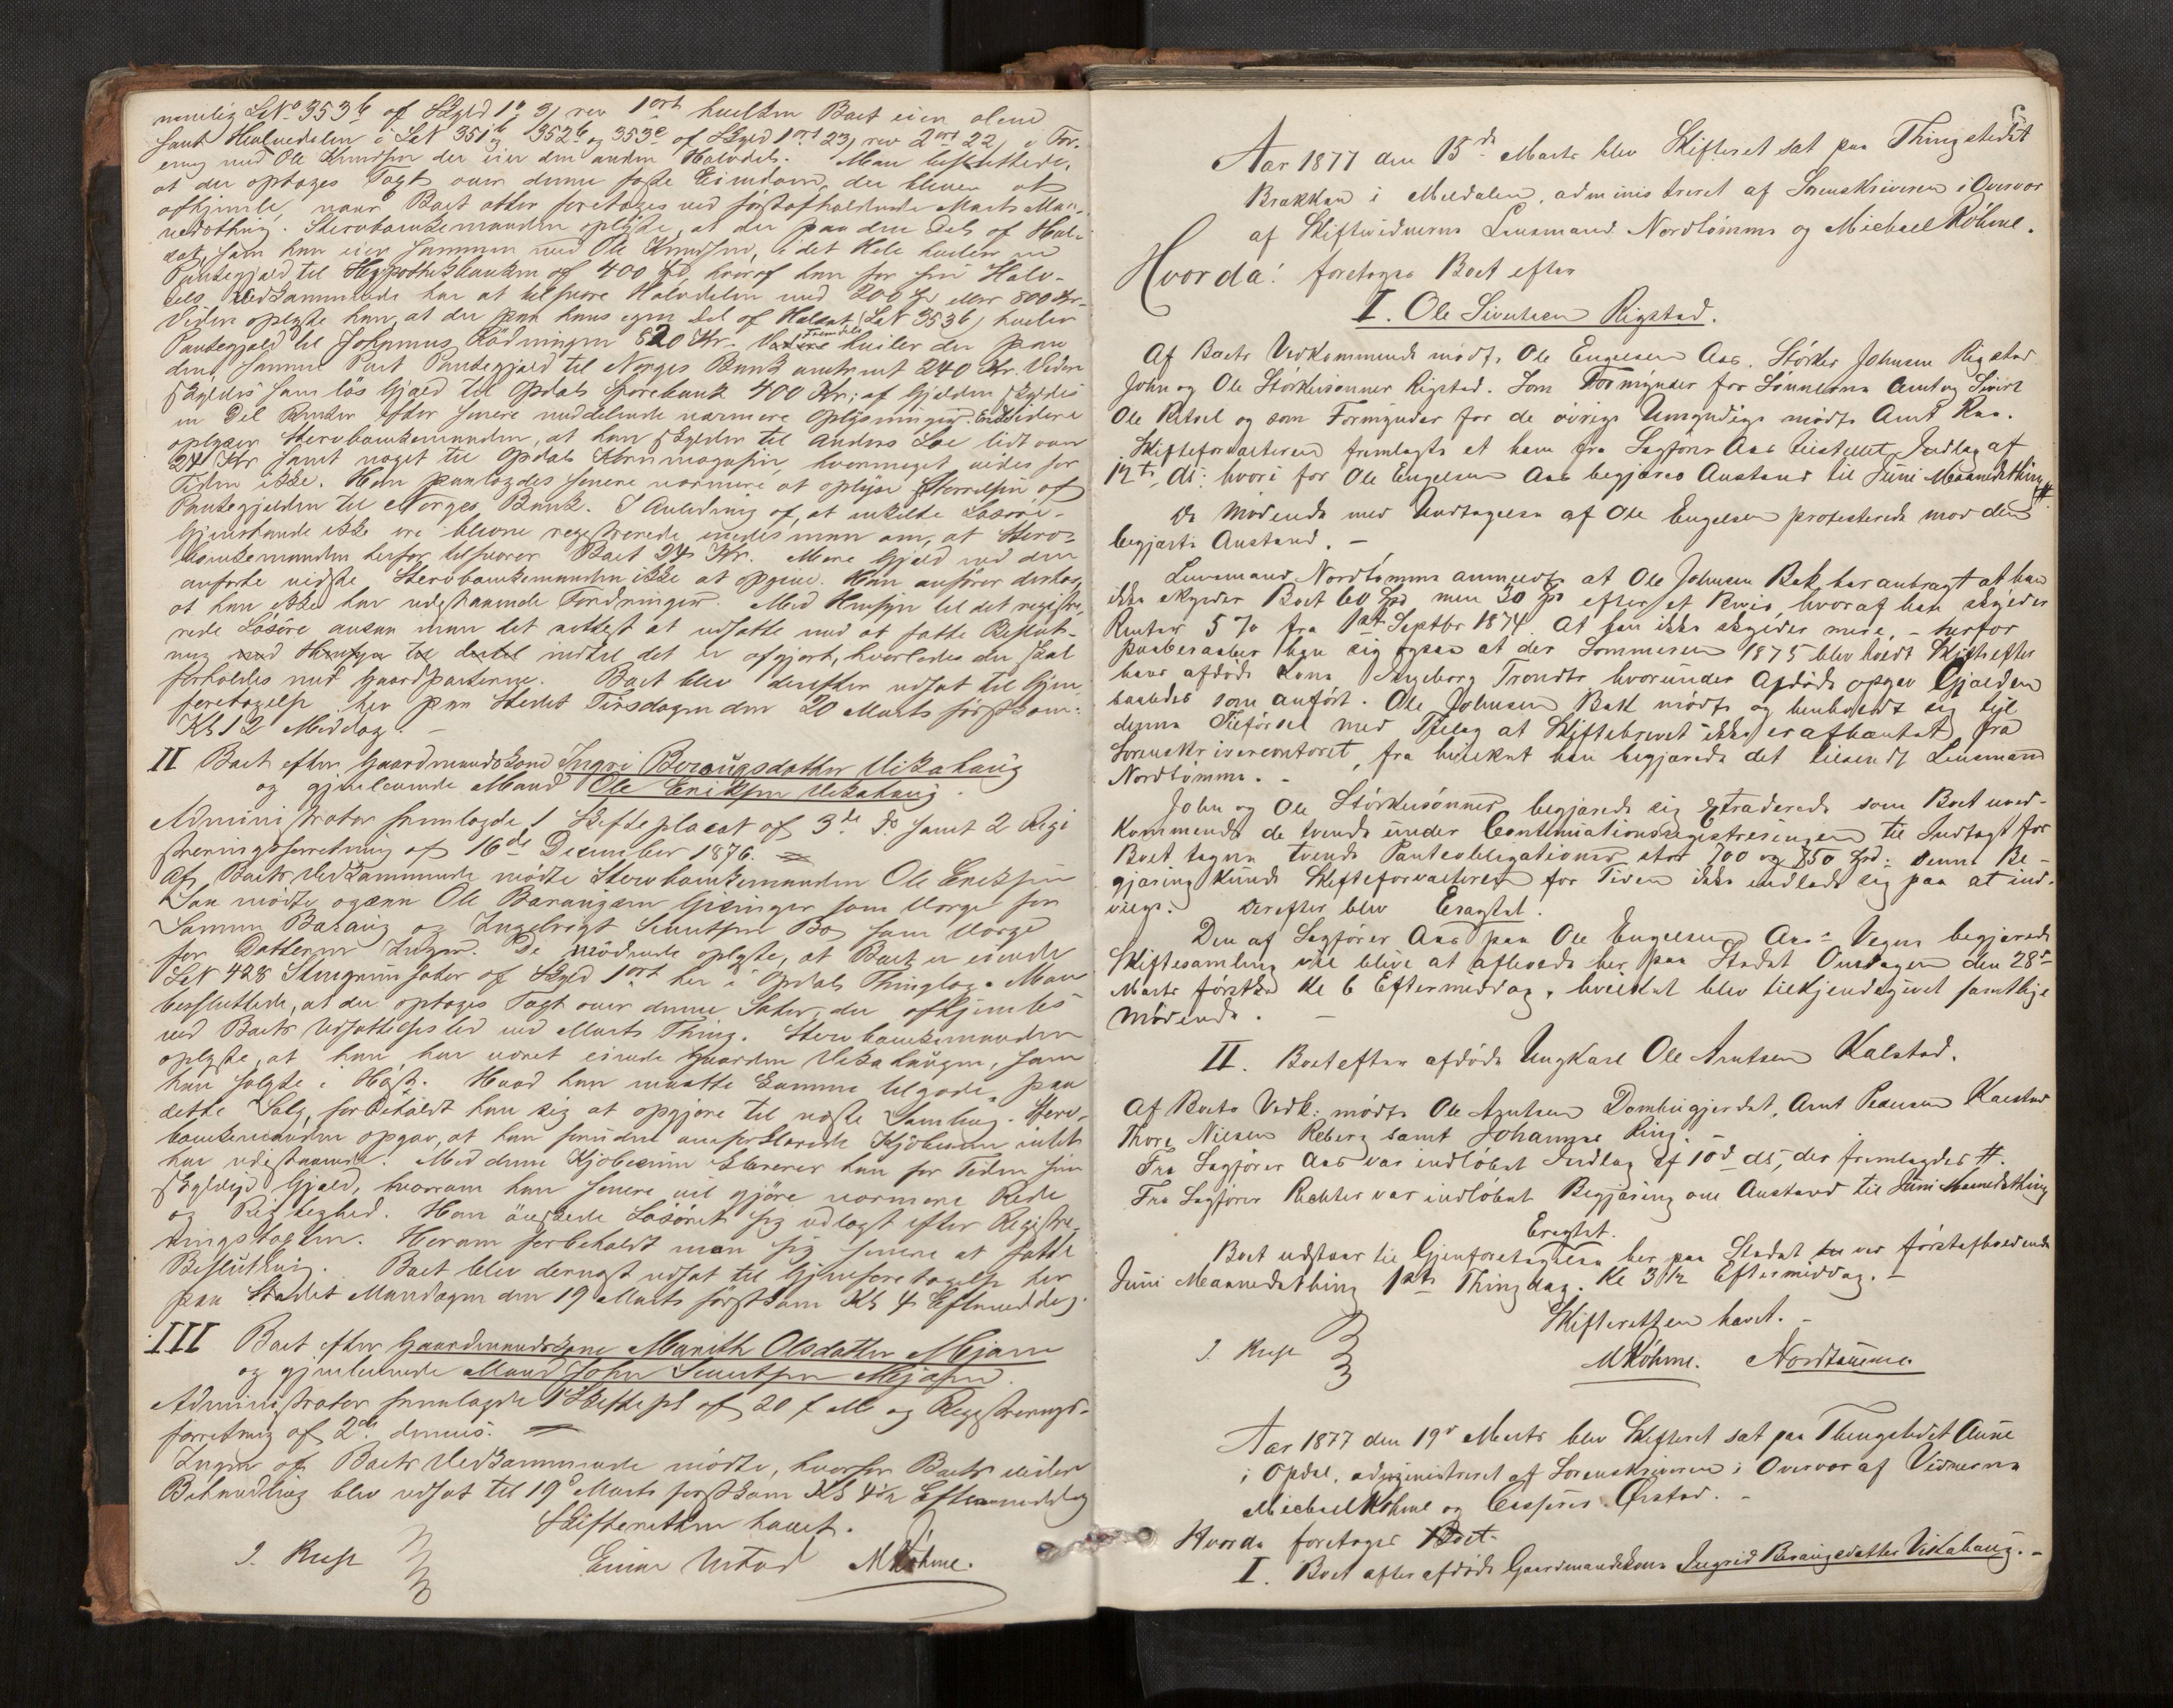 nemlig LNo 353b af Skyld 1 " 3, rev 1 ort hvilken Boet eier alene
samt Halvedelen i LN 351b 352b og 353c af Skyld 1 ort 23, rev 2 ort 22, i For-
ening med Ole Knudsen der eier den anden Halvdel. Man besluttede,
at der optoges Taxt over denne faste Eiendom, der bliver at
afhjemle, naar Boet atter foretages ved førstafholdende Marts Maa-
nedsthing. Stervboenkemanden oplyste, at der paa den Del af Hal-
sat, som han eier sammen med Ole Knudsen, i det Hele hviler en
Pantegjæld til Hypothekbanken af 400 Spd, hvoraf han for sin Halv-
dels Vedkommende har at tilsvare Halvdelen med 200 Sp eller 800 Kr.
Videre oplyste han, at der paa hans egen Del af Halset (LN 353b) hviler
Pantegjæld til Johannes Rödningen 820 Kr. Fremdeles hviler der paa
den samme Part Pantegjæld til Norges Bank antent 240 Kr. Videre
skyldes som løs Gjæld til Opdals Sparebank 400 Kr; af Gjælden skyldes
en Del Renter efter senere meddelende nærmere Oplysninger. Endvidere
oplyser Stervboenkemanden, at han skylder til Anders Loe lidt over
24 Kr samt noget til Opdals Kornmagasin, hvormeget vides for
Tiden ikke. Han paalagdes senere nærmere at oplyse Størrelsen af
Pantegjælden til Norges Bank. I Anledning af, at enkelte Løsøre-
Gjenstande ikke ere blevne registrerede enedes man om, at Sterv-
boenkemanden herfor tilsvarer Boet 24 Kr. Mere Gjæld end den
anførte vidste Stervboenkemanden ikke at opgive. Han anfører derhos,
at han ikke har udestaaende Fordringer. Med Hensyn til det registre-
rede Løsøre ansaa man det rettest at udsætte med at fatte Beslut-
ning med Hensyn til dertil indtil det er afgjort, hvorledes der skal
forholdes med Gaardparterne. Boet blev derefter udsat til Gjen-
foretagelse her paa Stedet Tirsdagen den 20 Marts førstkom:
Kl 12 Middag.
II Boet efter Gaardmandskone Ingri Beraugsdatter Vikahaug
og gjenlevende Mand Ole Eriksen Vikahaug.
Administrator fremlagde 1 Skifteplacat af 3de ds samt 2 Regi
streringsforretning af 16de December 1876.
Af Boets Vedkommende mødte Stervboenkemanden Ole Eriksen
Saa mødte ogsaa Ole Baraugsen Gisinger som Værge for
Sønnen Baraug og Ingebrigt Sivertsen Bo som Værge
for Datteren Ingeri. De mødende oplyste, at Boet er eiende
LN 428 Stengrimsæter af Skyld 1 ort her i Opdals Thinglag. Man
besluttede, at der optages Taxt over denne Sæter, der afhjemles
ved Boets Udsættelsestid ved Marts Thing. Stervboenkemanden
oplyste, at han har været eiende Gaarden Vikahaugen, som
han solgte i Høst. Hvad han maatte komme tilgode paa
dette Salg, forbeholdt han sig at opgjøre til næste Samling. Sterv-
boenkemanden opgav, at han foruden anførte Kjøbesum intet
har udestaaende. Med denne Kjøbesum klarerer han for Tiden sin
skyldige Gjæld, hvorom han senere vil gjøre nærmere Rede
og Rigtighed. Han ønskede Løsøret sig udlagt efter Registre-
ringstaxten. Herom forbeholdt man sig senere at fatte
Beslutning. Boet blev dernæst udsat til Gjenforetagelse her
paa Stedet Mandagen den 19 Marts førstkom Kl 4 Eftermiddag.
III Boet efter Gaardmandskone Marith Olsdatter Mjøen
og gjenlevende Mand John Sivertsen Mjøen.
Administrator fremlagde 1 Skiftepl af 20 f M og Registrerings-
forretning af 2den dennes.
Ingen af Boets Vedkommende mødte, hvorfor Boets videre
Behandling blev udsat til 19d Marts førstkom Kl 4 1/2 Eftermiddag
Skifteretten hævet.
J. Rusk Einar Urstad MKöhme.
Aar 1877 den 15de Marts blev Skifteret sat paa Thingstedet
Brækken i Meldalen, administreret af Sorenskriveren i Overvær
af Skiftevidnerne Lensmand Nordtømme og Michael Köhme.
Hvorda: foretoges Boet efter
I. Ole Sivertsen Rigstad.
Af Boets Vedkommende mødte Ole Engelsen Aas. Størker Johnsen Rigstad
John og Ole Størkersønner Rigstad. Som Formynder for Sønnerne Arnt og Sivert
Ole Ritsel og som Formynder for de øvrige Umyndige mødte Arnt Raa.
Skifteforvalteren fremlagte et ham fra Sagfører Aas tilstillet Indlag af
12te ds: hvori for Ole Engelsen Aas begjæres Anstand til Juni Maanedsthing #
De Mødende med Undtagelse af Ole Engelsen protesterede mod den
begjærte Anstand. –
Lensmand Nordtømme anmeldte at Ole Johnsen Bak har andragt at han
ikke skylder Boet 60 Spd men 30 Sp efter et Bevis, hvoraf han skylder
Renter 5 % fra 1ste Septbr 1874. At han ikke skylder mere, – herfor
paaberaaber han sig ogsaa at der Sommeren 1875 blev holdt Skifte efter
hans afdøde Kone Ingeborg Trondts hvorunder Afdøde opgav Gjælden
saaledes som anført. Ole Johnsen Bak mødte og henholdt sig til
denne Tilførsel med Tillæg at Skiftebrevet ikke er afhentet fra
Sorenskrivercontoret, fra hvilket han begjærede det tilsendt Lensmand
Nordtømme. –
John og Ole Størkersønner begjærede sig extraderede som Boet uved-
kommende de tvende under Continuationsregistreringen til Indtægt for
Boet tagne tvende Panteobligationer stor 700 og 850 Spd: Denne Be-
gjæring kunde Skifteforvalteren for Tiden ikke indlade sig paa at ind-
vilge. Derefter blev Eragtet.
Den af Sagfører Aas paa Ole Engelsen Aas's Vegne begjærede
Skiftesamling vil blive at afholde her paa Stedet Onsdagen den 28de
Marts førstk: Kl 6 Eftermiddag, hvilket blev tilkjendegivet samtlige
Mødende. –
II. Boet efter afdøde Ungkarl Ole Arntsen Kalstad.
Af Boets Vedk: mødte Ole Arntsen Dombugjerdet, Arnt Pedersen Kalstad
Thore Nielsen Reberg samt Johannes Ring. –
Fra Sagfører Aas var indløbet Indlag af 10d ds, der fremlagdes #.
Fra Sagfører Richter var indløbet Begjæring om Anstand til Juni Maanedsthing
Eragtet.
Boet udstaar til Gjenforetagelse her paa Stedet ved førstafholdende
Juni Maanedsthing 1ste Thingdag. Kl 3 1/2 Eftermiddag. –
Skifteretten hævet. –
J. Rusk MKöhme. Nordtømme
Aar 1877 den 19d Marts blev Skifteret sat paa Thingstedet Aune
i Opdal, administreret af Sorenskriveren i Overvær af Vidnerne
Michael Köhme og Casper Ørstad. –
Hvorda foretoges Boet
I. Boet efter afdøde Gaardmandskone Ingrid Baraugsdatter Vikahaug. –